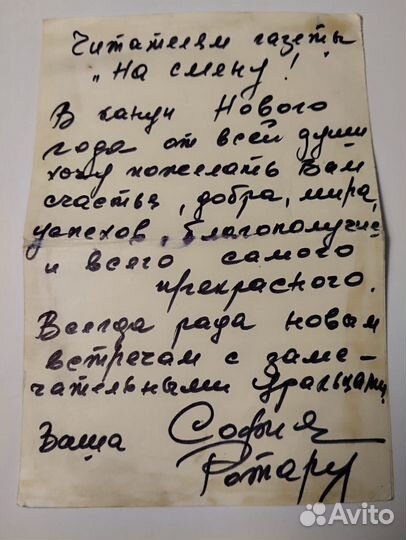 Читателям газеты
„На смену!
В канун Нового
года от всей души
хочу пожелать Вам
счастья, добра, мира,
успехов, благополучия
и всего самого
прекрасного.
Всегда рада новым
встречам с заме-
чательными Уральцами
Ваша София
Ротару
Avito